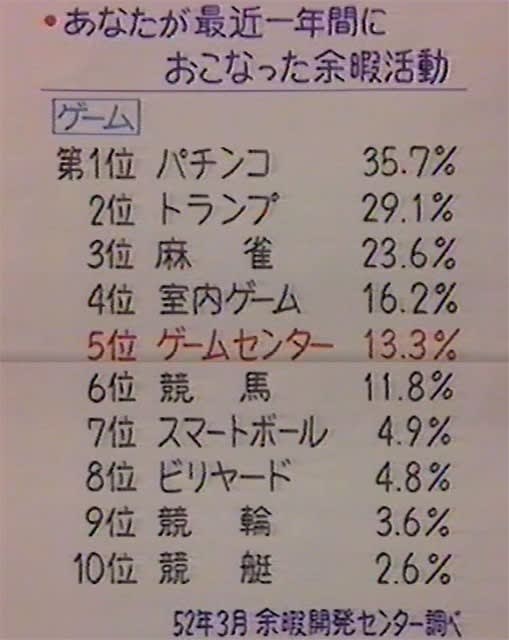 ・あなたが最近一年間に
おこなった余暇活動
ゲーム
第1位 パチンコ 35.7%
2位 トランプ 29.1%
3位 麻 雀 23.6%
4位 室内ゲーム 16.2%
5位 ゲームセンター 13.3%
6位 競 馬 11.8%
7位 スマートボール 4.9%
8位 ビリヤード 4.8%
9位 競 輪 3.6%
10位 競 艇 2.6%
52年3月 余暇開発センター調べ